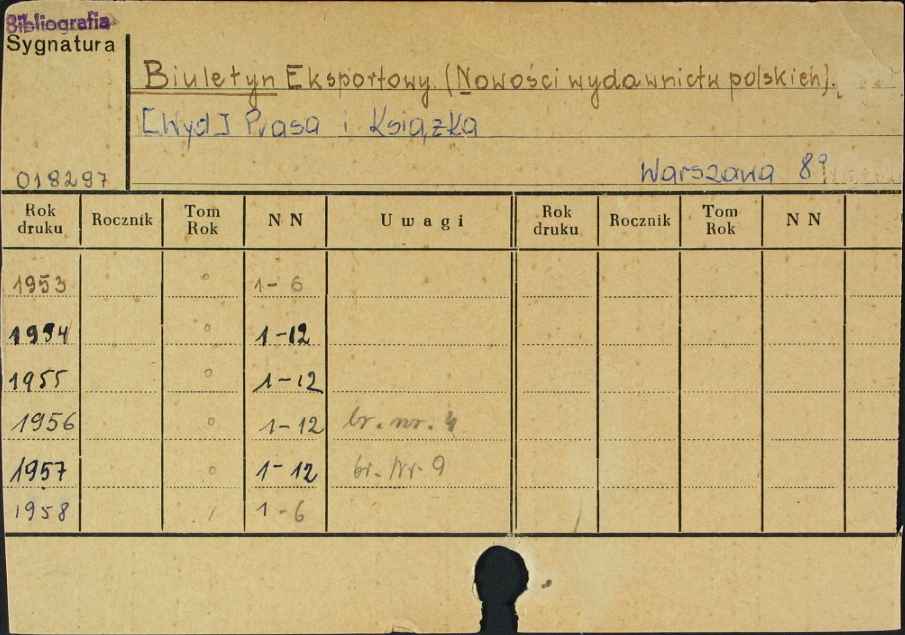 Bibliografia
Sygnatura
Biuletyn Eksportowy. (Nowości wydawnictw polskich).
[Wyd] Prasa i Książka
018297
Warszawa 8°
Rok druku Rocznik Tom Rok NN Uwagi Rok druku Rocznik Tom Rok NN
1953 ° 1-6
1954 ° 1-12
1955 ° 1-12
1956 ° 1-12 br. nr. 4
1957 ° 1-12 br. Nr. 9
1958 1-6